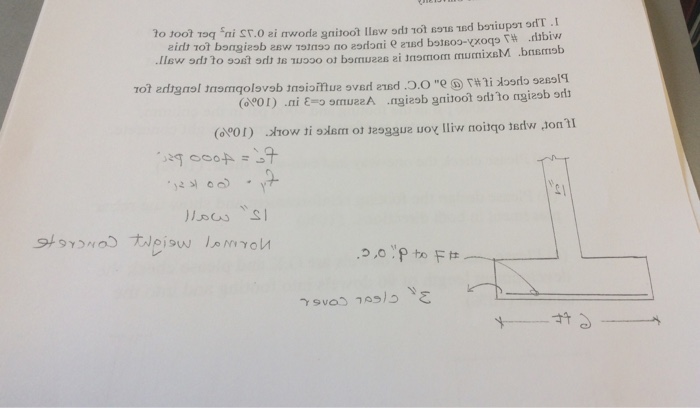 1. The required bar area for the wall footing shown is 0.72 in² per foot of
width. #7 epoxy-coated bars 9 inches on center was designed for this
demand. Maximum moment is assumed to occur at the face of the wall.
Please check if #7 @ 9" O.C. bars have sufficient development lengths for
the design of the footing design. Assume c=3 in. (10%)
If not, what option will you suggest to make it work. (10%)
f'c = 4000 psi
fy = 60 ksi
12" wall
Normal weight Concrete
12"
#7 at 9" o.c.
3" clear cover
6 ft